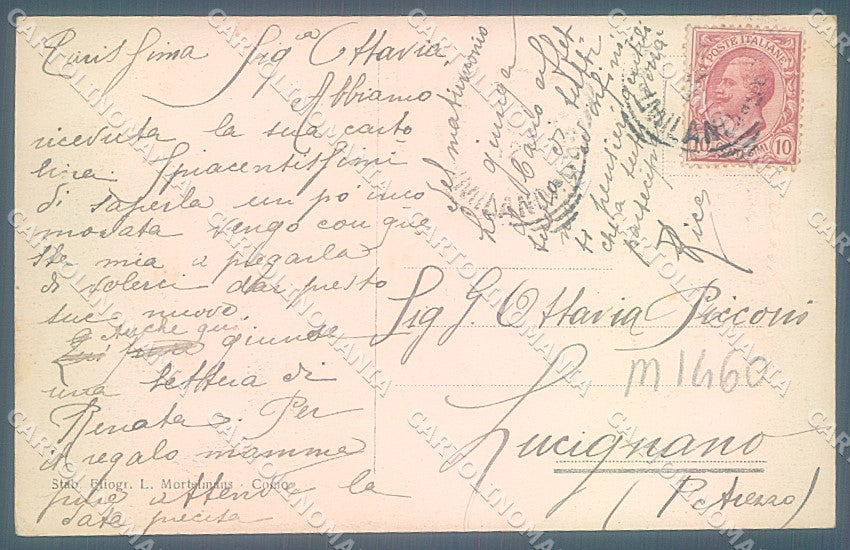 Carissima Sig.ra Ottavia
Abbiamo
ricevuta la sua carto
lina. Spiacentissimi
di saperla un po' inco
modata vengo con que
sta mia a pregarla
di volerci dar presto
sue nuove.
Anche qui giunse
una lettera di
Renata. Per
il regalo mamma
pure attende la
data precisa
del matrimonio
giunga
affet
pensieri gentili
che a tutti
partecip
Nice
POSTE ITALIANE
10 10
MILANO
MILANO
Sig. G. Ottavia Picconi
m1460
Lucignano
(P. Arezzo)
Stab. Eliogr. L. Mortelmans - Como
CARTOLINOMANIA